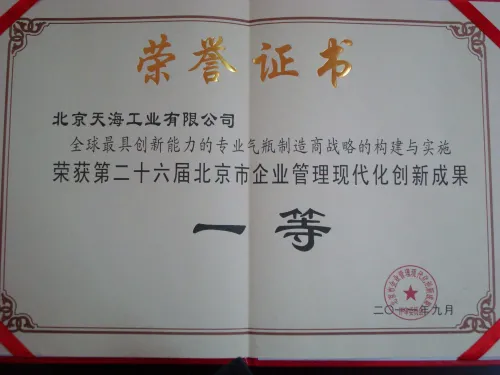 荣誉证书
北京天海工业有限公司
全球最具创新能力的专业气瓶制造商战略的构建与实施
荣获第二十六届北京市企业管理现代化创新成果
一等
二〇一 年九月